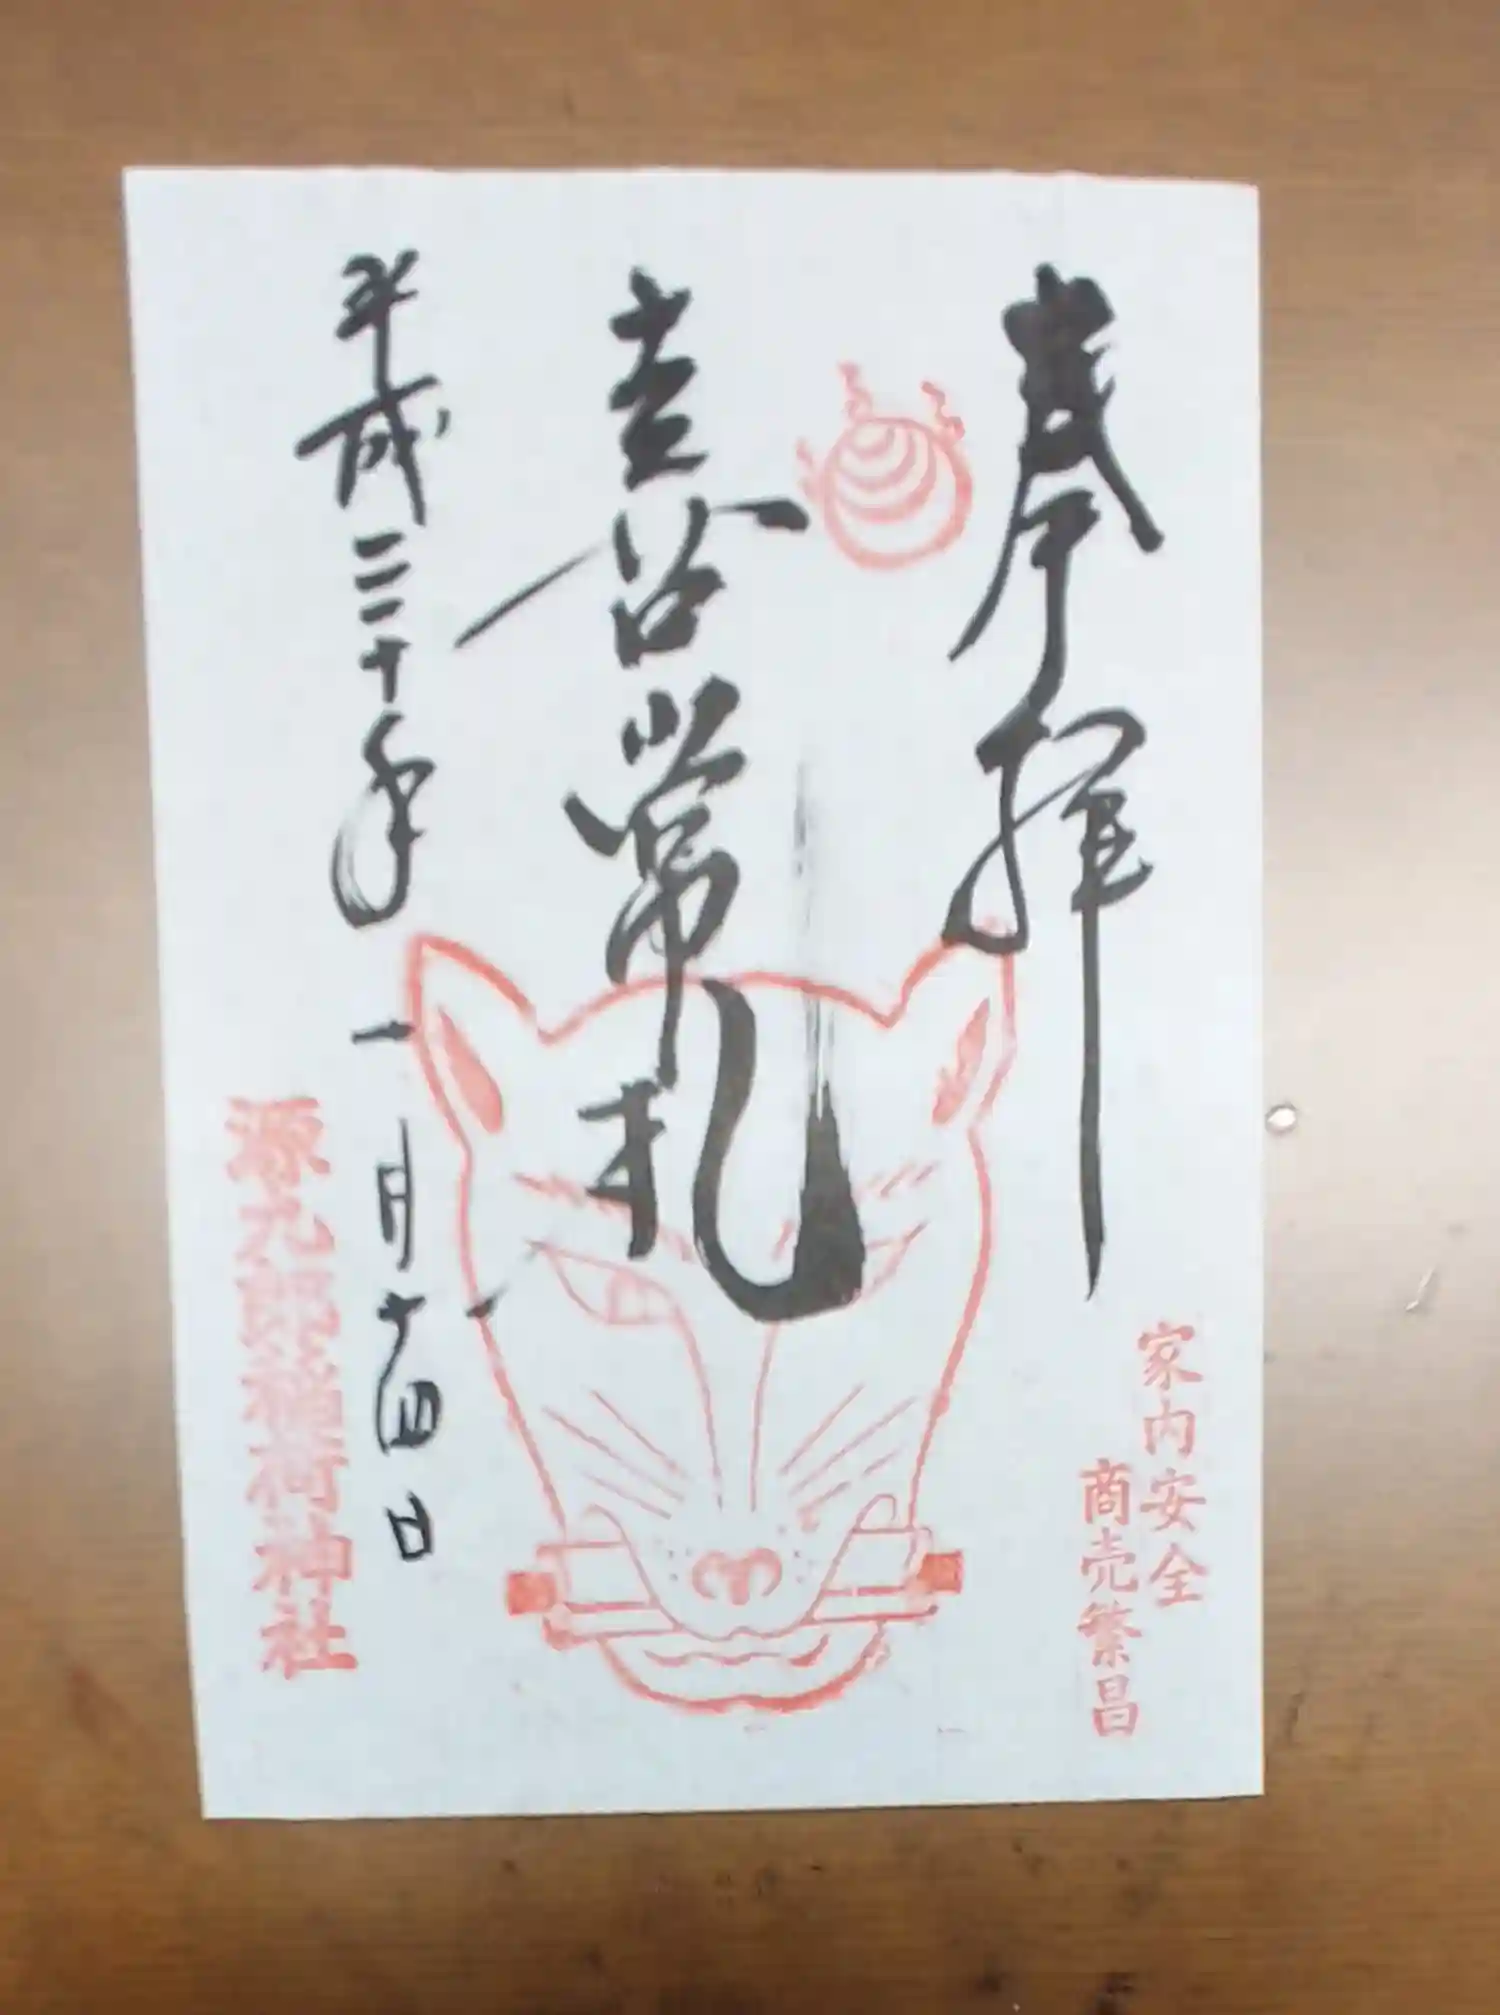 奉拝
家内安全
商売繁昌
平成三十年一月十四日
源九郎稲荷神社